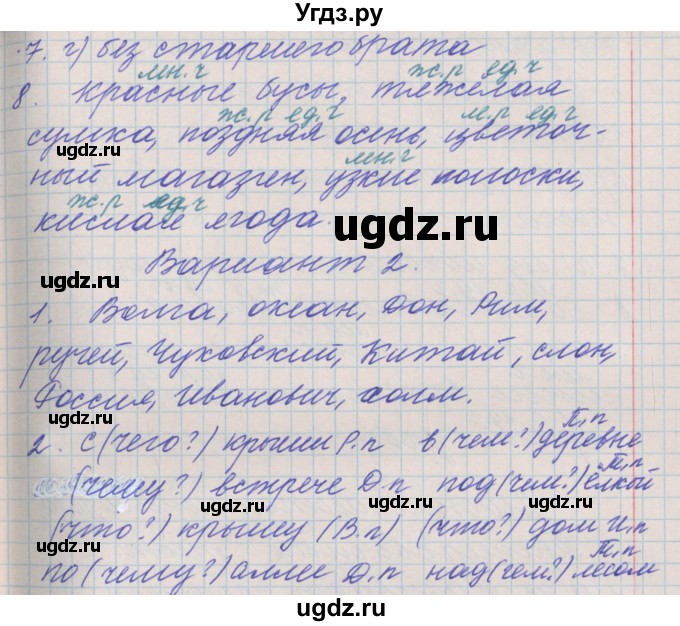 Угдз.ру
7. г) без старшего брата
мн.ч ж.р ед.ч
8. красные бусы, тяжелая
ж.р ед.ч м.р ед.ч
сумка, поздняя осень, цветоч-
мн.ч
ный магазин, узкие полоски,
ж.р ед.ч
кислая ягода.
Вариант 2.
1. Волга, океан, Дон, Рим,
ручей, Чуковский, Китай, слон,
Россия, Иванович, холм.
П.п
2. с (чего?) крыши Р.п в (чем?) деревне
Т.п
(чему?) встрече Д.п под (чем?) ёлкой
(что?) крышу (В.п) (что?) дом И.п
Т.п
по (чему?) аллее Д.п над (чем?) лесом
ugdz.ru